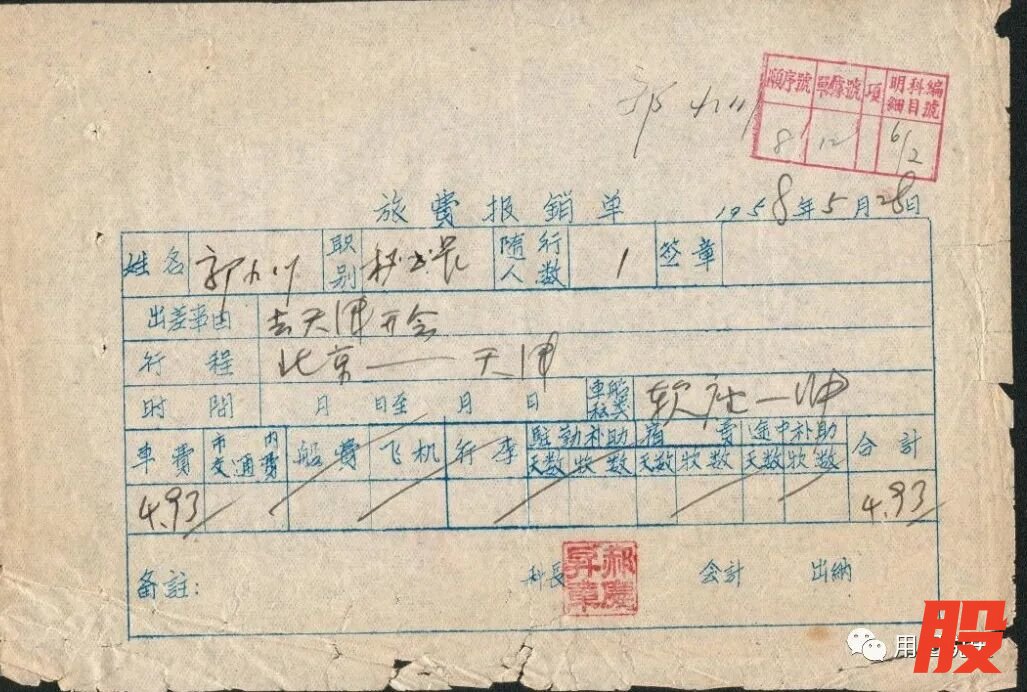 順序號 單據號 项 明細科目編號
8 12 6/2
郭小川
旅費报銷单 1958年5月28日
姓名 郭小川 职别 秘书长 隨行人数 1 签章
出差事由 去天津开会
行程 北京——天津
时間 月 日至 月 日 車船种类 软座一
車費 市内交通費 船費 飞机 行李 駐勤补助 宿費 途中补助 合計
天数 收数 天数 收数 天数 收数
4.93 4.93
备註: 科長 会計 出納
股